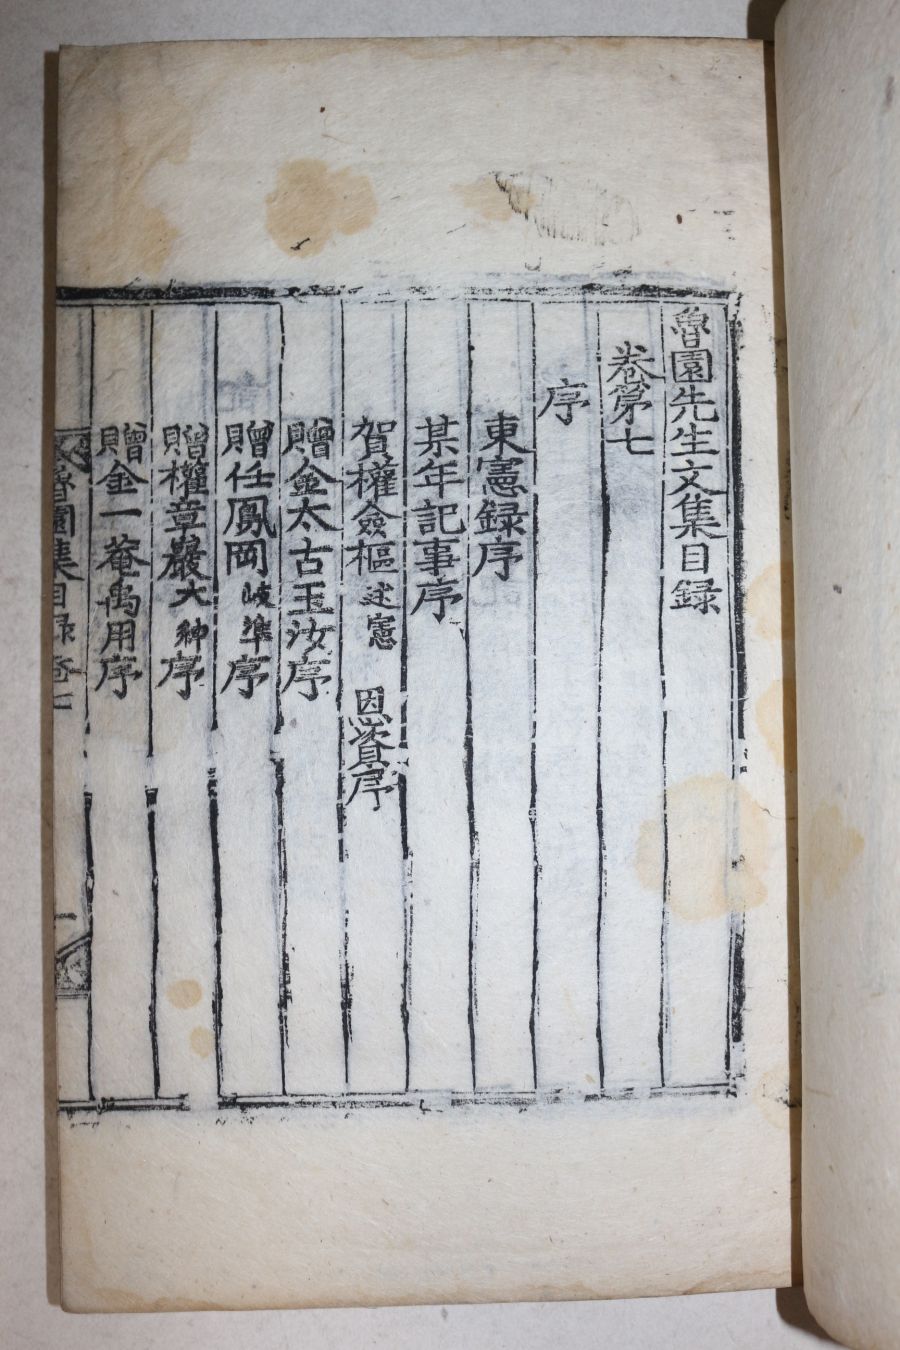 魯園先生文集目録
卷第七
序
東憲録序
某年記事序
賀權僉樞述憲 恩資序
贈金太古玉汝序
贈任鳳岡岐準序
贈權章巖大紳序
贈金一菴禹用序
魯園集目録卷七 一